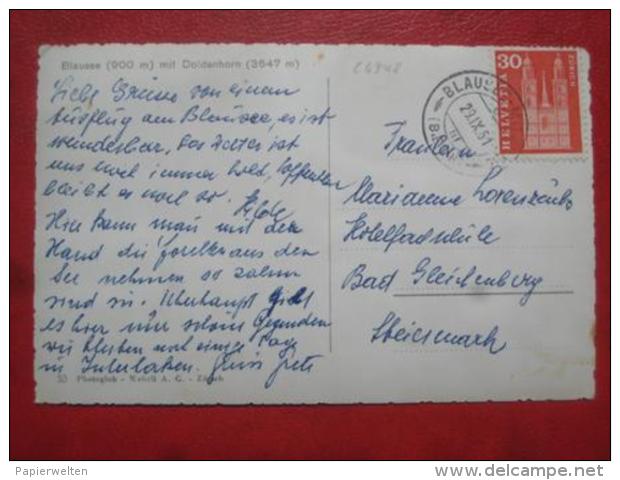 Blausee (900 m) mit Doldenhorn (3647 m)
Liebe Grüsse von einem
Ausflug am Blausee, es ist
wunderbar, das Wetter ist
uns weil immer hold, hoffentlich
bleibt es noch so. Hilde
Hier kann man mit der
Hand die Forellen aus dem
See nehmen so zahm
sind sie. Überhaupt gibt
es hier nur schöne Gegenden
wir bleiben noch einige Tage
in Interlaken. Grete
53 Photoglob - Wehrli A. G. - Zürich
30
HELVETIA
ZÜRICH
BLAUSEE
29.IX.61
Fräulein
Marianne
Hotelfachschule
Bad Gleichenberg
Steiermark
Papierwelten
www.delcampe.net